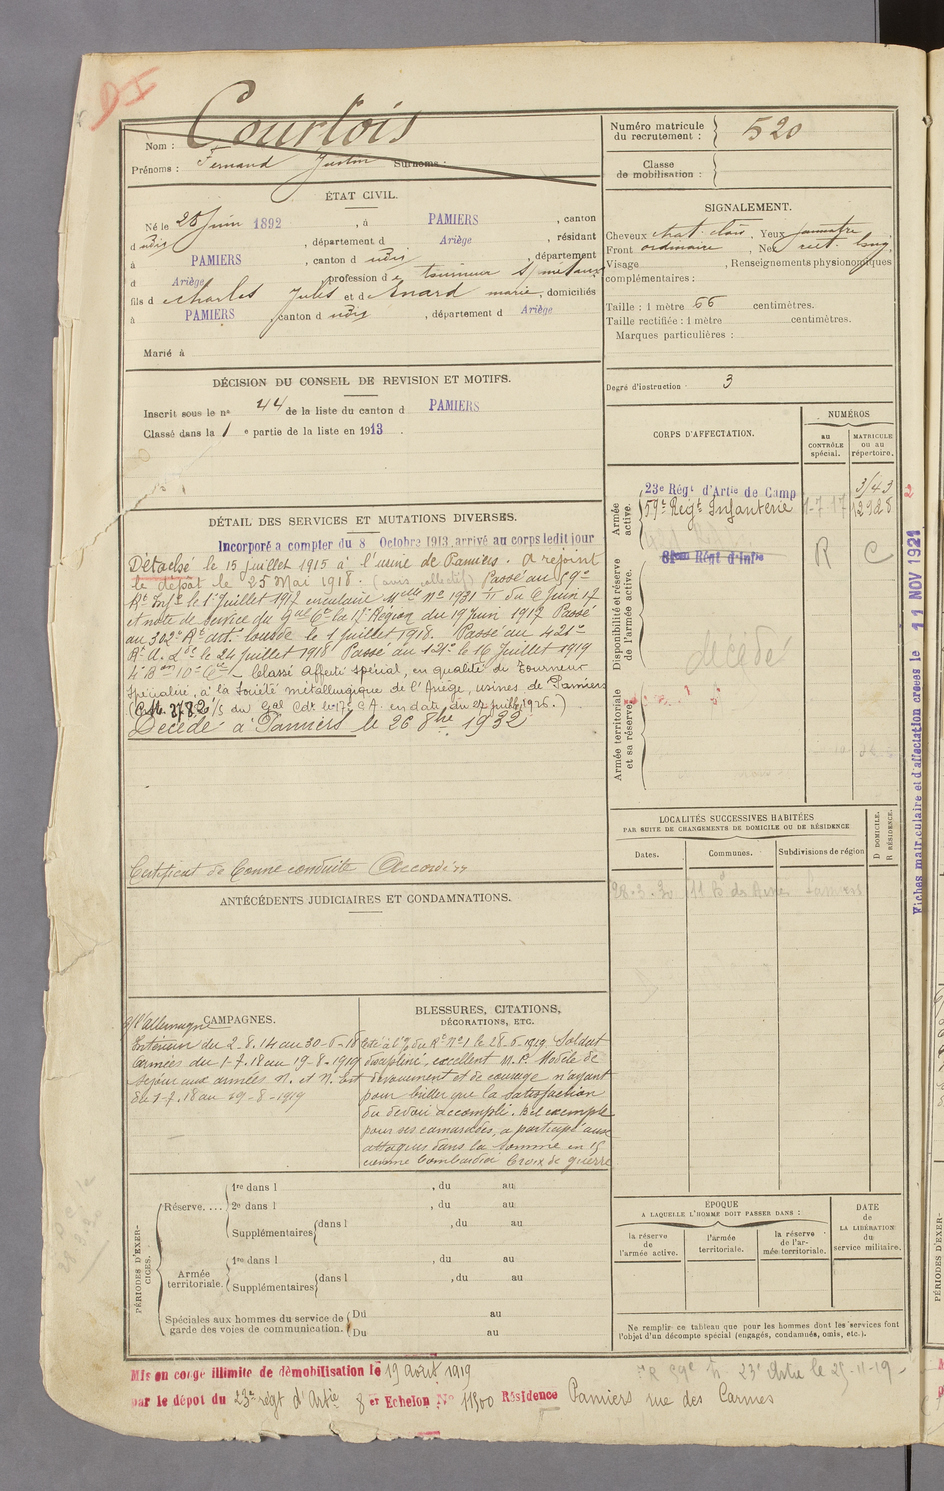 DI
Nom : Courtois
Prénoms : Fernand Justin Surnoms :
Numéro matricule du recrutement : 520
Classe de mobilisation :
ÉTAT CIVIL.
Né le 28 Juin 1892, à PAMIERS, canton
d udis, département d Ariège, résidant
à PAMIERS, canton d udis, département
d Ariège, profession de tourneur s/ métaux
fils d Charles Jules et d Enard marie, domiciliés
à PAMIERS canton d udis, département d Ariège
Marié à
SIGNALEMENT.
Cheveux chat. clair, Yeux jaunatre
Front ordinaire, Nez rect. long.
Visage, Renseignements physionomiques
complémentaires :
Taille : 1 mètre 66 centimètres.
Taille rectifiée : 1 mètre centimètres.
Marques particulières :
Degré d'instruction 3
DÉCISION DU CONSEIL DE REVISION ET MOTIFS.
Inscrit sous le no 44 de la liste du canton d PAMIERS
Classé dans la 1 e partie de la liste en 1913.
CORPS D'AFFECTATION.
NUMÉROS
au CONTRÔLE spécial.
MATRICULE ou au répertoire.
Armée active.
23e Régt d'Artie de Camp 3/43
59e Régt Infanterie 1-7-17 12928
Disponibilité et réserve de l'armée active.
R C
décédé
Armée territoriale et sa réserve
DÉTAIL DES SERVICES ET MUTATIONS DIVERSES.
Incorporé a compter du 8 Octobre 1913, arrivé au corps ledit jour
Détaché le 15 juillet 1915 à l'usine de Pamiers. A rejoint
le dépôt le 25 Mai 1918. (avis collectif) Passé au 59e
Rt Infie le 1er Juillet 1917 circulaire Mlle No 1931 du 6 Juin 17
et note de service du Gral Ct la 17e Région du 19 Juin 1917 Passé
au 302e Rt art. lourde le 1 Juillet 1918. Passé au 421e
Rt A. Lde le 24 Juillet 1918 Passé au le 16 Juillet 1919
Classé affecté spécial, en qualité de Tourneur
spécialisé, à la Société métallurgique de l'Ariège, usines de Pamiers
du Gal Cdt le 17e C.A. en date du 27 juillet 1926.)
Décédé à Pamiers le 26 8bre 1932
Certificat de bonne conduite Accordé
Fiches matriculaire et d'affectation créées le 11 NOV 1921
LOCALITÉS SUCCESSIVES HABITÉES
PAR SUITE DE CHANGEMENTS DE DOMICILE OU DE RÉSIDENCE
Dates. Communes. Subdivisions de région D DOMICILE. R RÉSIDENCE.
Pamiers
ANTÉCÉDENTS JUDICIAIRES ET CONDAMNATIONS.
CAMPAGNES.
c/ l'allemagne
Intérieur du 2.8.14 au 30-6-18
armées du 1-7.18 au 19-8-1919
séjour aux armées N. et N. Est
du 1-7.18 au 19-8-1919
BLESSURES, CITATIONS,
DÉCORATIONS, ETC.
Cité à l'O. du Rt No 1 le 28.6.1919. Soldat
discipliné, excellent Modèle de
dévouement et de courage n'ayant
pour briller que la satisfaction
du devoir accompli. Bel exemple
pour ses camarades, a participé aux
attaques dans la Somme en
comme bombardier Croix de guerre
PÉRIODES D'EXERCICES.
Réserve.... 1re dans l, du au
2e dans l, du au
Supplémentaires dans l, du au
Armée territoriale. 1re dans l, du au
Supplémentaires dans l, du au
Spéciales aux hommes du service de garde des voies de communication. Du au
Du au
ÉPOQUE
A LAQUELLE L'HOMME DOIT PASSER DANS :
la réserve de l'armée active.
l'armée territoriale.
la réserve de l'armée territoriale.
DATE de LA LIBÉRATION du service militaire.
Ne remplir ce tableau que pour les hommes dont les services font
l'objet d'un décompte spécial (engagés, condamnés, omis, etc.).
Mis en congé illimité de démobilisation le 19 Août 1919
23e Artie le 25-11-19
par le dépôt du 23e régt d'Artie 8 er Echelon No 11500 Résidence Pamiers rue des Carmes